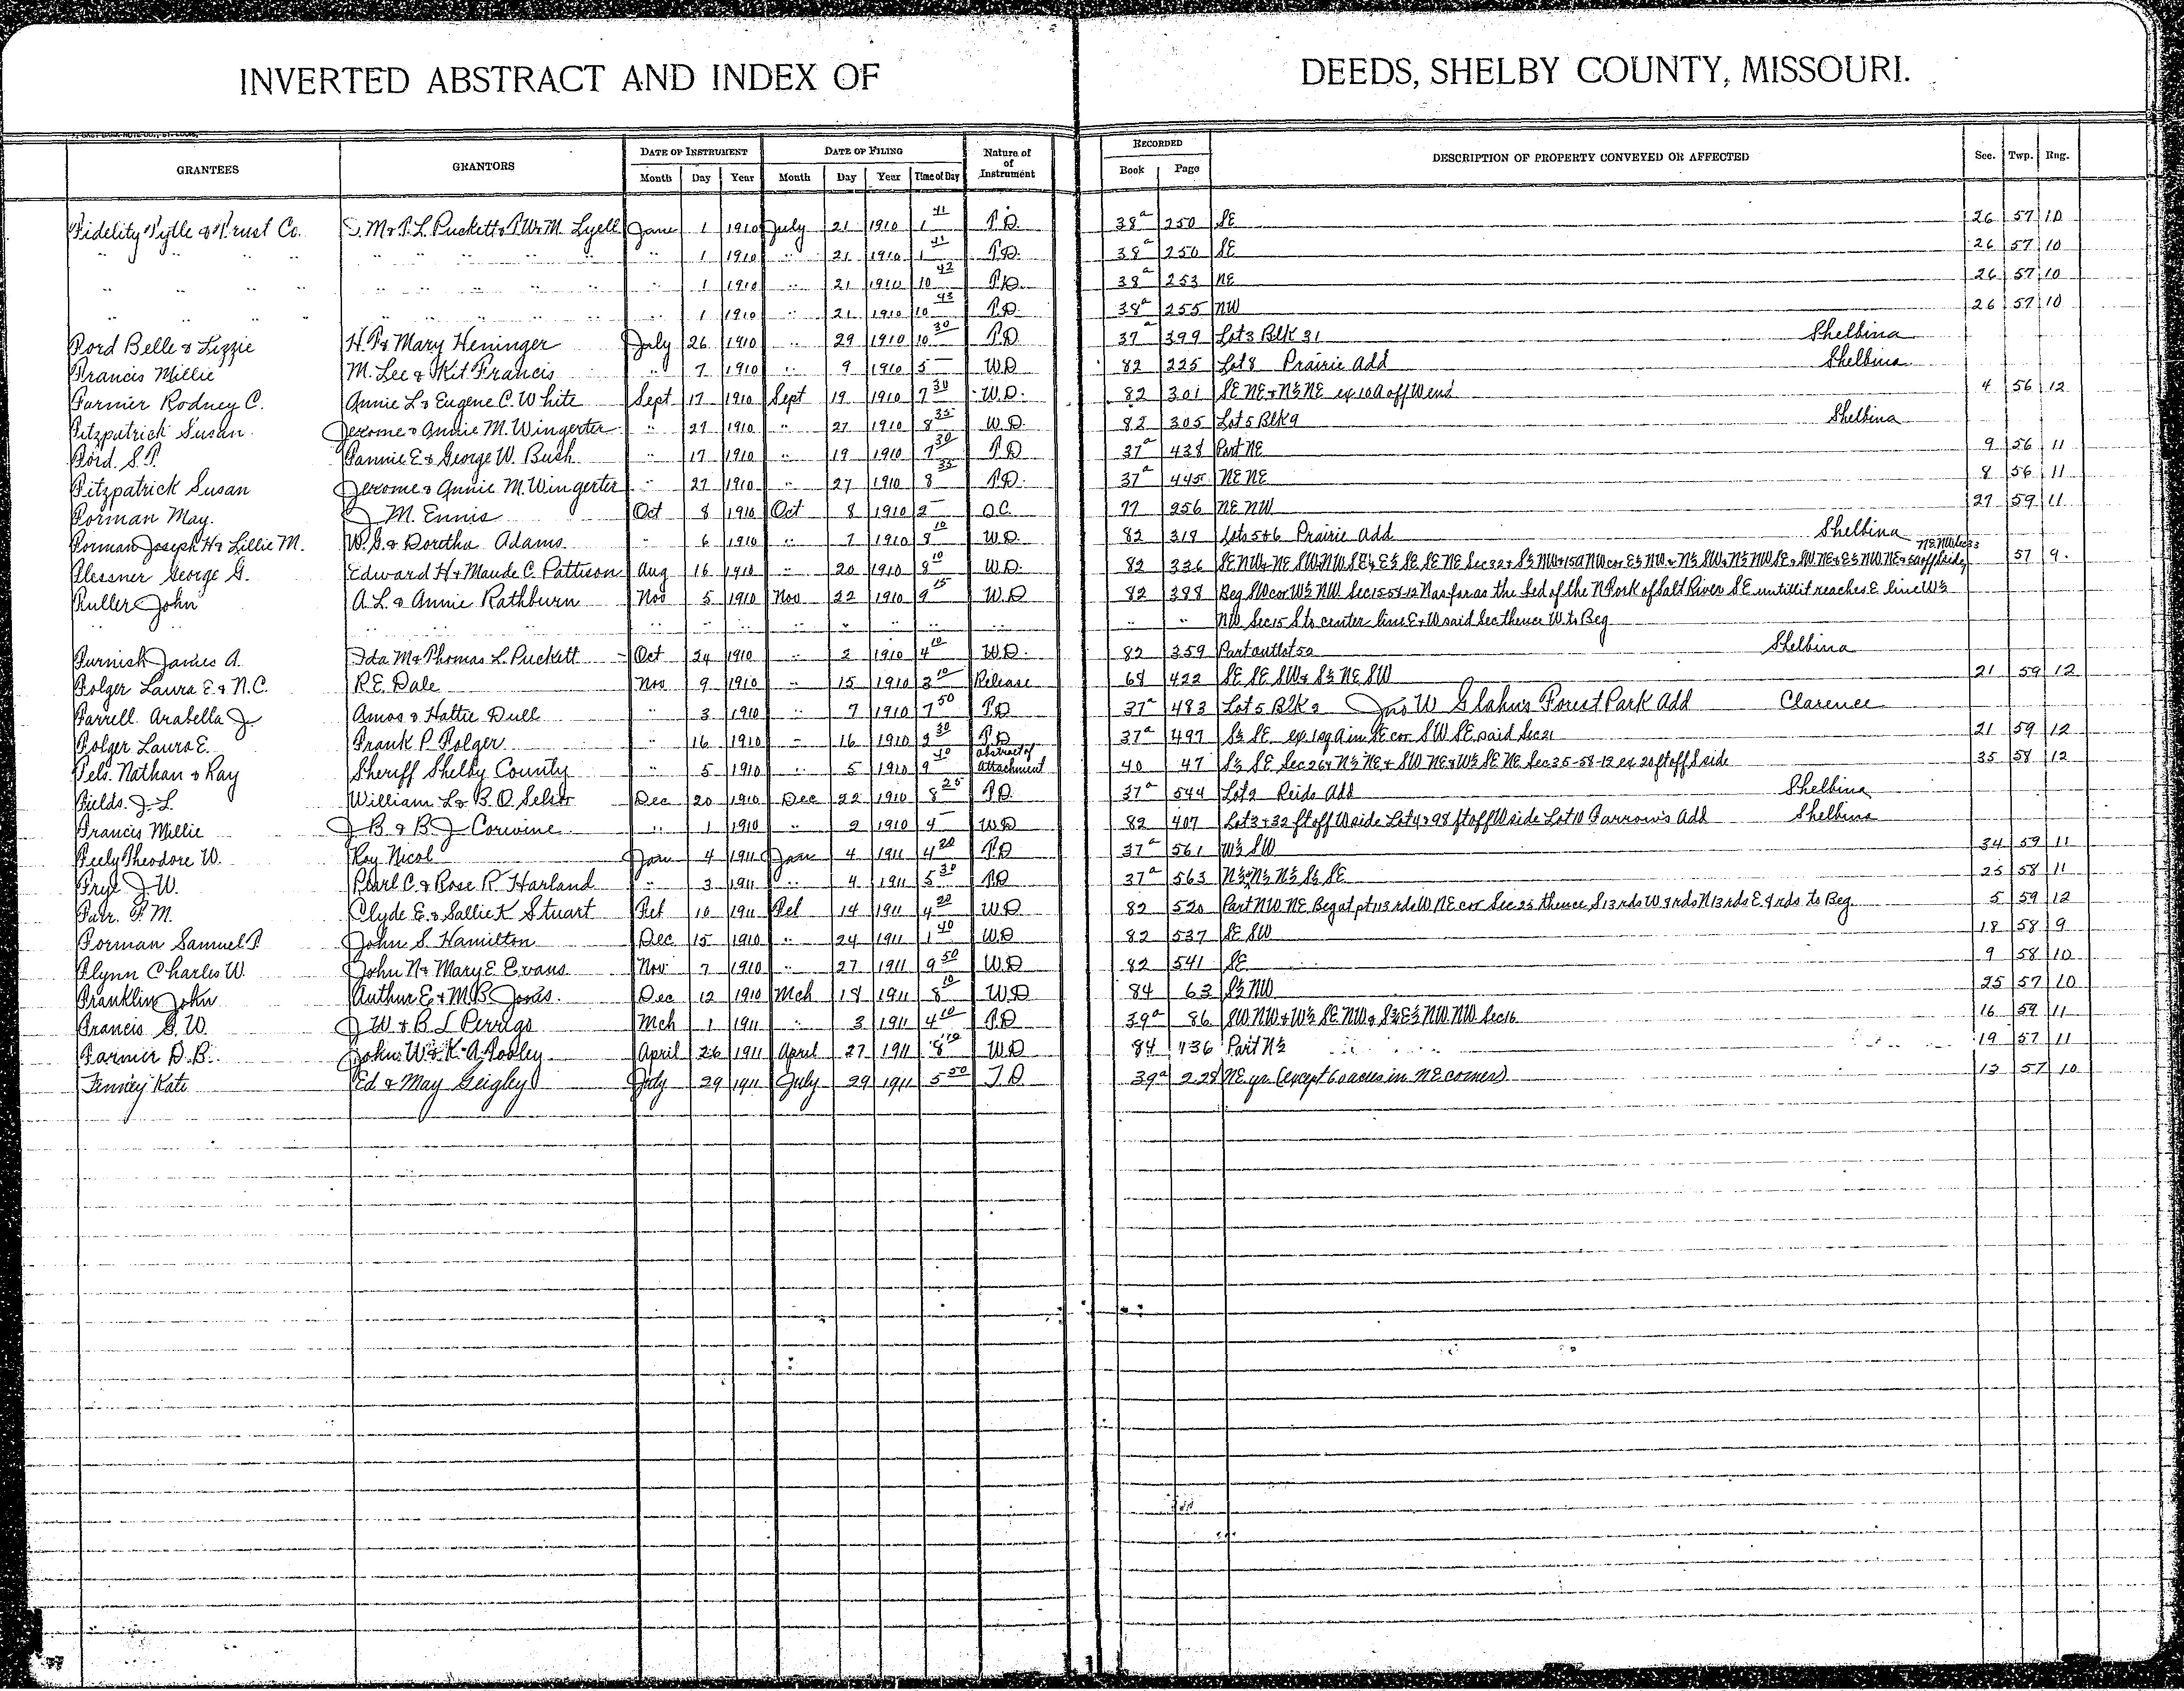 INVERTED ABSTRACT AND INDEX OF DEEDS, SHELBY COUNTY, MISSOURI.
GRANTEES GRANTORS DATE OF INSTRUMENT DATE OF FILING Nature of of Instrument RECORDED DESCRIPTION OF PROPERTY CONVEYED OR AFFECTED Sec. Twp. Rng.
Month Day Year Month Day Year Time of Day Book Page
Fidelity Tytle & Trust Co. S. M & T. L. Puckett & P W & M. Lyell June 1 1910 July 21 1910 1 41 T.D. 38a 250 SE 26 57 10
" " " " " " " " " " 1 1910 " 21 1910 1 41 T.D. 38a 250 SE 26 57 10
" " " " " " " " " " 1 1910 " 21 1910 10 42 T.D. 38a 253 NE 26 57 10
" " " " " " " " " " 1 1910 " 21 1910 10 43 T.D. 38a 255 NW 26 57 10
Ford Belle & Lizzie H. P. & Mary Heninger July 26 1910 " 29 1910 10 30 T.D 37a 399 Lot 3 Blk 31 Shelbina
Francis Millie M. Lee & Kit Francis " 7 1910 " 9 1910 5 — W.D 82 225 Lot 8 Prairie Add Shelbina
Farmer Rodney C. Annie L & Eugene C. White Sept 17 1910 Sept 19 1910 7 30 W.D. 82 301 SE NE & N½ NE ex 10a off W end 4 56 12
Fitzpatrick Susan Jerome & Annie M. Wingerter " 27 1910 " 27 1910 8 35 W.D. 82 305 Lot 5 Blk 9 Shelbina
Ford. S. T. Fannie E & George W. Bush " 17 1910 " 19 1910 7 30 T.D 37a 438 Part NE 9 56 11
Fitzpatrick Susan Jerome & Annie M. Wingerter " 27 1910 " 27 1910 8 35 T.D. 37a 445 NE NE 8 56 11
Forman May. J M. Ennis Oct 8 1910 Oct 8 1910 2 — Q.C. 77 256 NE NW 27 59 11
Forman Joseph H & Lillie M. W. G. & Doretha Adams " 6 1910 " 7 1910 8 10 W.D. 82 319 Lots 5 & 6 Prairie Add Shelbina
Flessner George G. Edward H & Maude C. Pattison Aug 16 1910 " 20 1910 8 10 W.D. 82 336 57 9.
Fuller John A. L. & Annie Rathburn Nov 5 1910 Nov 22 1910 9 15 W.D 82 388 Beg SW cor W½ NW Sec 15-58-12 N as far as the bed of the N Fork of Salt River SE untill it reaches E line W½
" " " " " " " " " " " NW Sec 15 S to center line E & W said Sec thence W to Beg
Furnish James A. Ida M & Thomas L. Puckett Oct 24 1910 " 2 1910 4 10 W.D. 82 359 Part outlot 52 Shelbina
Folger Laura E. & N.C. R. E. Dale Nov 9 1910 " 15 1910 3 10 Release 68 422 SE SE SW & S½ NE SW 21 59 12
Farrell Arabella J. Amos & Hattie Dull " 3 1910 " 7 1910 7 50 T.D 37a 483 Lot 5 Blk 2 Jno W Glahn's Forest Park Add Clarence
Folger Laura E. Frank P Folger " 16 1910 " 16 1910 2 30 T.D 37a 497 S½ SE ex 1 sq a in SE cor SW SE said Sec 21 21 59 12
Fels. Nathan & Ray Sheriff Shelby County " 5 1910 " 5 1910 9 40 Abstract of Attachment 40 47 S½ SE Sec 26 & N½ NE & SW NE & W½ SE NE Sec 35-58-12 ex 20 ft off S side 35 58 12
Fields. J. L. William L & B. O. Selsor Dec 20 1910 Dec 22 1910 8 25 T.D. 37a 544 Lot 2 Reids Add Shelbina
Francis Millie J B & B J Corwine " 1 1910 " 2 1910 4 — W.D 82 407 Lot 3 & 32 ft off W side Lot 4 & 98 ft off W side Lot 10 Farrow's Add Shelbina
Feely Theodore W. Roy Nicol Jan 4 1911 Jan 4 1911 4 20 T.D 37a 561 W½ SW 34 59 11
Frye J W. Pearl C. & Rose P. Harland " 3 1911 " 4 1911 5 30 T.D 37a 563 N½ & N½ N½ S½ SE 25 58 11
Farr. F M. Clyde E. & Sallie K Stuart Feb 10 1911 Feb 14 1911 4 20 W.D 82 520 Part NW NE Beg at pt 113 rds W NE cor Sec 25 thence S 13 rds W 9 rds N 13 rds E 9 rds to Beg 5 59 12
Forman Samuel T John S. Hamilton Dec 15 1910 " 24 1911 1 40 W.D 82 537 SE SW 18 58 9
Flynn Charles W. John N & Mary E Evans Nov 7 1910 " 27 1911 9 50 W.D 82 541 SE 9 58 10
Franklin John Arthur E & M. B. Jones. Dec 12 1910 Mch 18 1911 8 10 W.D 84 63 S½ NW 25 57 10
Francis G. W. J W & B L Perrigo Mch 1 1911 " 3 1911 4 10 T.D 39a 86 SW NW & W½ SE NW & S½ E½ NW NW Sec 16 16 59 11
Farmer D. B. John W & K. A. Pooley April 26 1911 April 27 1911 8 10 W.D 84 136 Part N½ 19 57 11
Finney Kate Ed & May Geigley July 29 1911 July 29 1911 5 50 T.D 39a 228 NE qr (except 6 acres in NE corner) 12 57 10